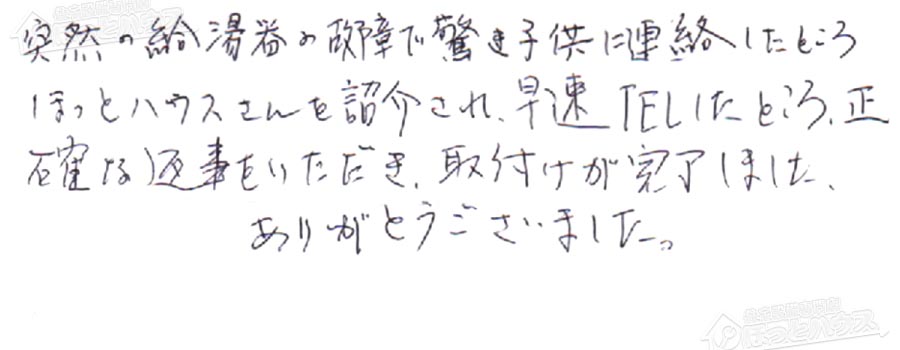 突然の給湯器の故障で驚き子供に連絡したところ
ほっとハウスさんを紹介され、早速TELしたところ、正
確な返事をいただき、取付けが完了しました、
ありがとうございました。
ほっとハウス